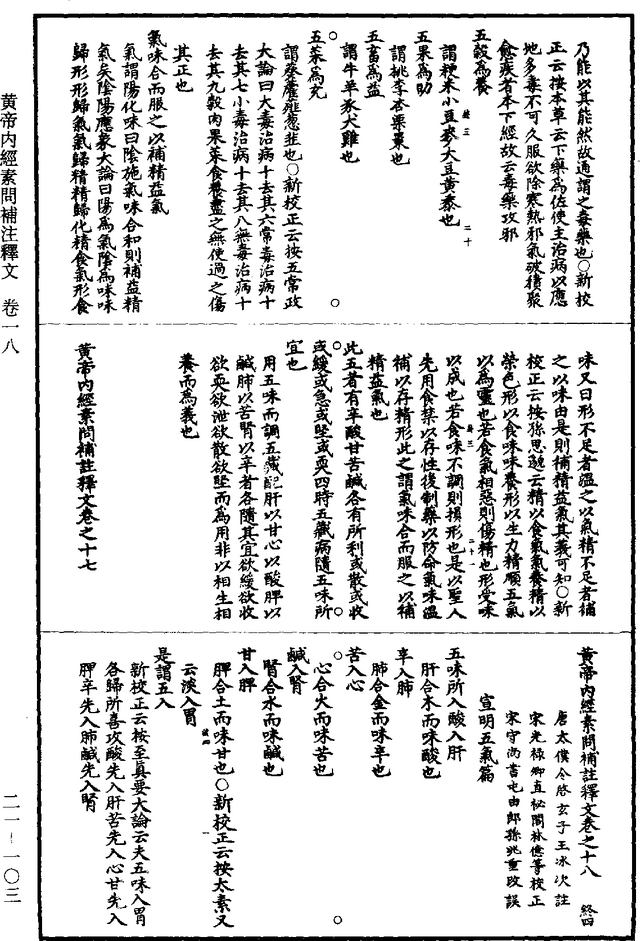 黃帝內經素問補注釋文　卷一八
二一－一〇三
乃能以其能然故通謂之毒藥也○新校
正云按本草云下藥為佐使主治病以應
地多毒不可久服欲除寒熱邪氣破積聚
愈疾者本下經故云毒藥攻邪
五穀為養
謂粳米小豆麥大豆黃黍也
五果為助
謂桃李杏栗棗也
五畜為益
謂牛羊豕犬雞也
五菜為充
謂葵藿薤蔥韮也○新校正云按五常政
大論曰大毒治病十去其六常毒治病十
去其七小毒治病十去其八無毒治病十
去其九穀肉果菜食養盡之無使過之傷
其正也
氣味合而服之以補精益氣
氣謂陽化味曰陰施氣味合和則補益精
氣矣陰陽應象大論曰陽為氣陰為味味
歸形形歸氣氣歸精精歸化精食氣形食
味又曰形不足者溫之以氣精不足者補
之以味由是則補精益氣其義可知○新
校正云按孫思邈云精以食氣氣養精以
榮色形以食味味養形以生力精順五氣
以為靈也若食氣相惡則傷精也形受味
以成也若食味不調則損形也是以聖人
先用食禁以存性後制藥以防命氣味溫
補以存精形此之謂氣味合而服之以補
精益氣也
此五者有辛酸甘苦鹹各有所利或散或收
或緩或急或堅或耎四時五藏病隨五味所
宜也
用五味而調五藏配肝以甘心以酸脾以
鹹肺以苦腎以辛者各隨其宜欲緩欲收
欲耎欲泄欲散欲堅而為用非以相生相
養而為義也
黃帝內經素問補註釋文卷之十七
黃帝內經素問補註釋文卷之十八　終四
唐太僕令啓玄子王冰次註
宋光祿卿直祕閣林億等校正
宋守尚書屯田郎孫兆重改誤
宣明五氣篇
五味所入酸入肝
肝合木而味酸也
辛入肺
肺合金而味辛也
苦入心
心合火而味苦也
鹹入腎
腎合水而味鹹也
甘入脾
脾合土而味甘也○新校正云按太素又
云淡入胃
是謂五入
新校正云按至真要大論云夫五味入胃
各歸所喜攻酸先入肝苦先入心甘先入
脾辛先入肺鹹先入腎